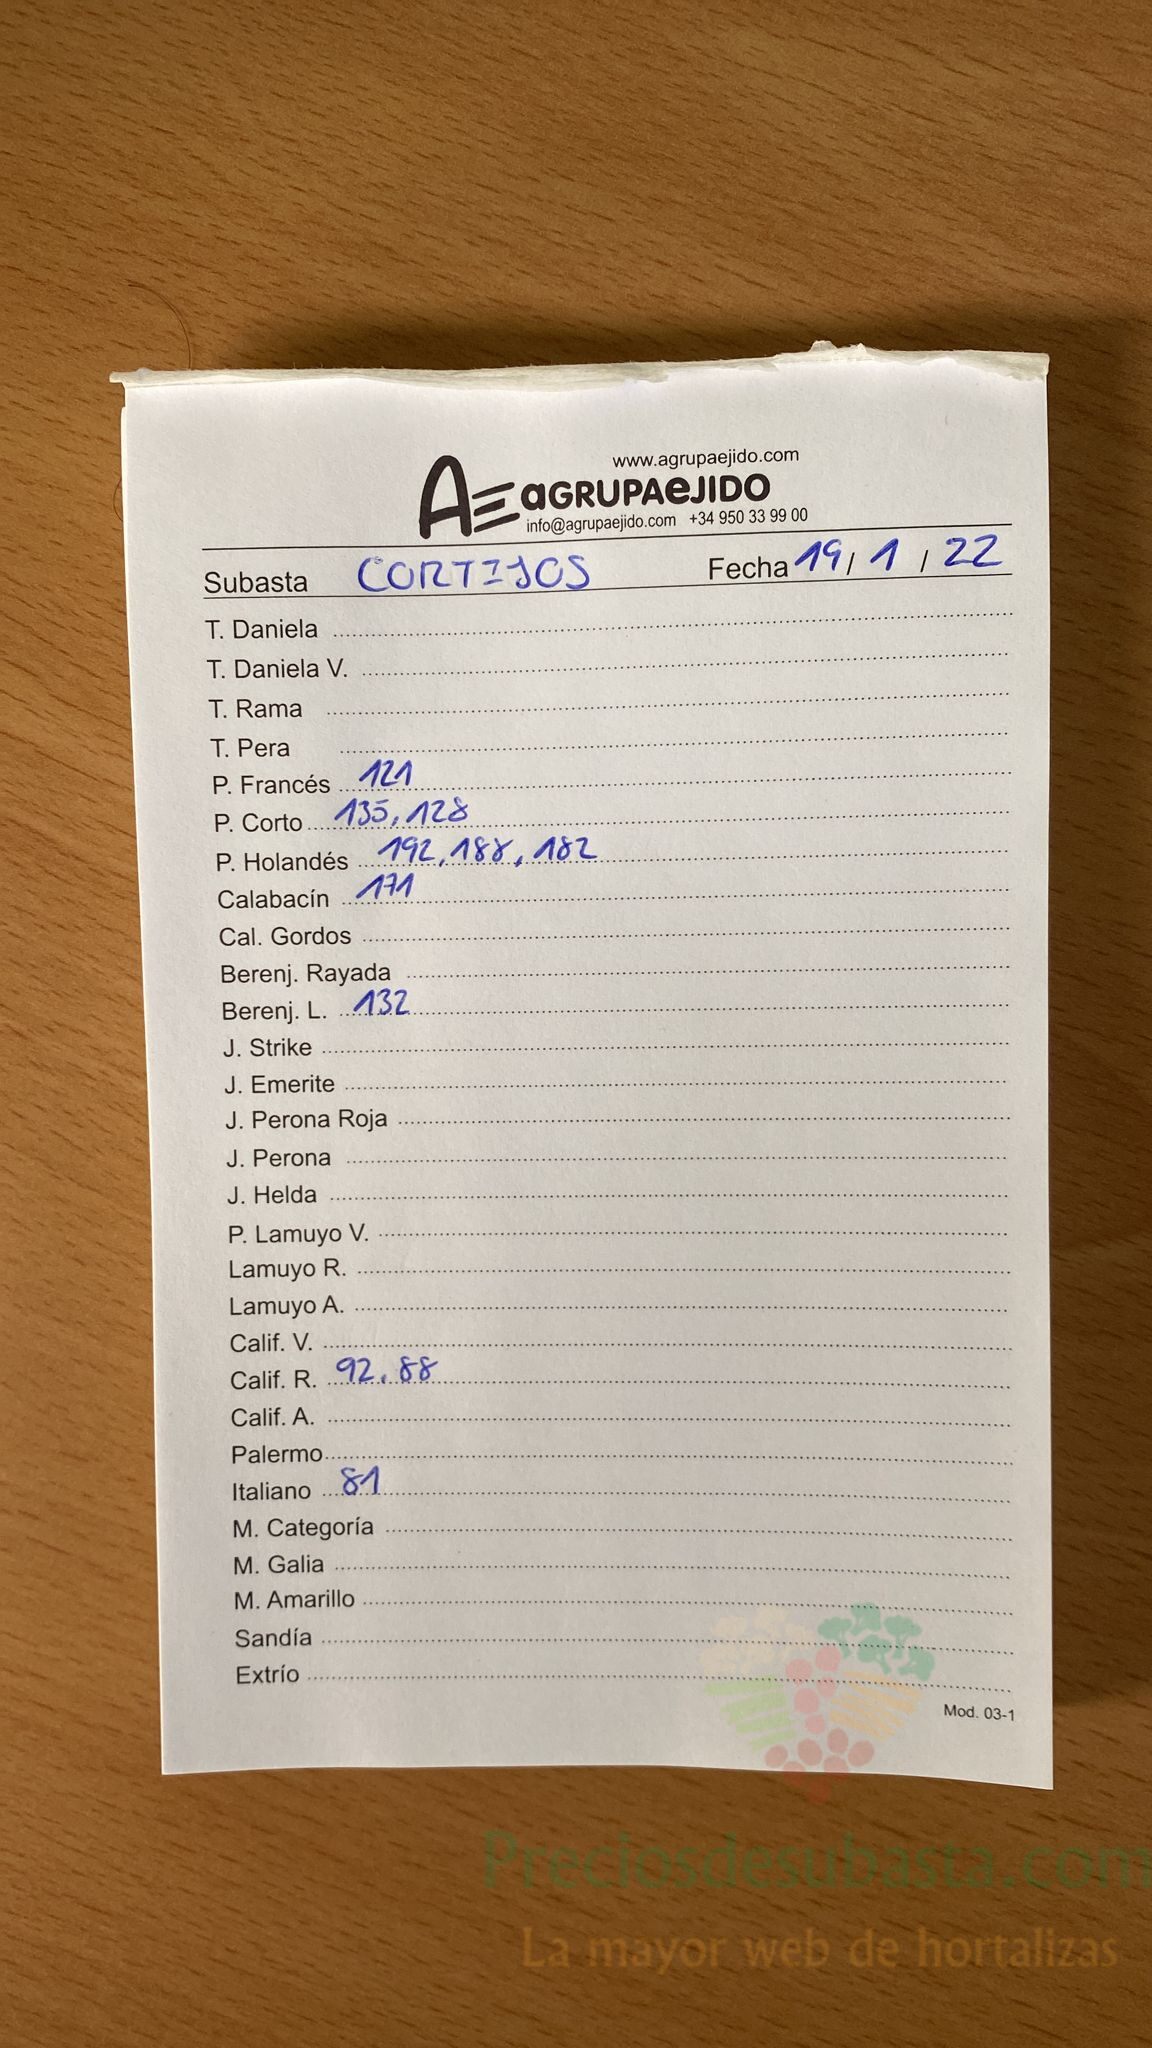 www.agrupaejido.com
AE aGRUPAeJIDO
info@agrupaejido.com +34 950 33 99 00
Subasta CORTIJOS Fecha 19/ 1 / 22
T. Daniela
T. Daniela V.
T. Rama
T. Pera
P. Francés 121
P. Corto 135, 128
P. Holandés 192, 188, 182
Calabacín 171
Cal. Gordos
Berenj. Rayada
Berenj. L. 132
J. Strike
J. Emerite
J. Perona Roja
J. Perona
J. Helda
P. Lamuyo V.
Lamuyo R.
Lamuyo A.
Calif. V.
Calif. R. 92, 88
Calif. A.
Palermo
Italiano 81
M. Categoría
M. Galia
M. Amarillo
Sandía
Extrío
Mod. 03-1
Preciosdesubasta.com
La mayor web de hortalizas